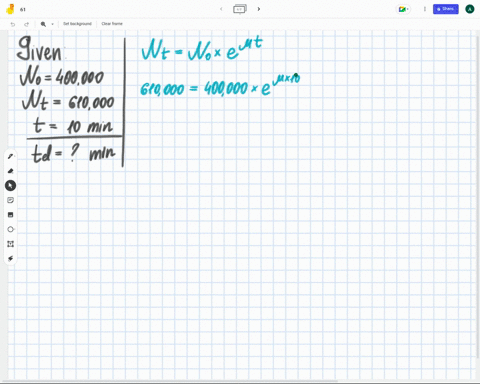 61
Share
Set background
Clear frame
Given
N₀ = 400,000
Nt = 610,000
t = 10 min
td = ? min
Nt = N₀ × e^μt
610,000 = 400,000 × e^μ×10